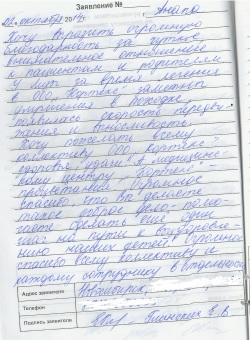 Заявление №
октября 201 г. Анапа
Хочу выразить огромную
благодарность за чуткое,
внимательное отношение
к пациентам и родителям
У нас во время лечения
в ООО "Кортекс" заметны
улучшения в походке,
появилась скорость передви-
жания и выносливость.
Хочу пожелать всему
коллективу ООО "Кортекс"
здоровья, удачи! А медицинс-
кому центру "Кортекс"
процветания. Огромное
спасибо, что вы делаете
такое доброе дело, помо-
гаете сделать ещё один
шаг на пути к выздоровле-
нию наших детей! Огромное
спасибо всему коллективу и
каждому сотруднику в отдельности
Адрес заявителя Новосибирск,
Телефон
Подпись заявителя Е. В.